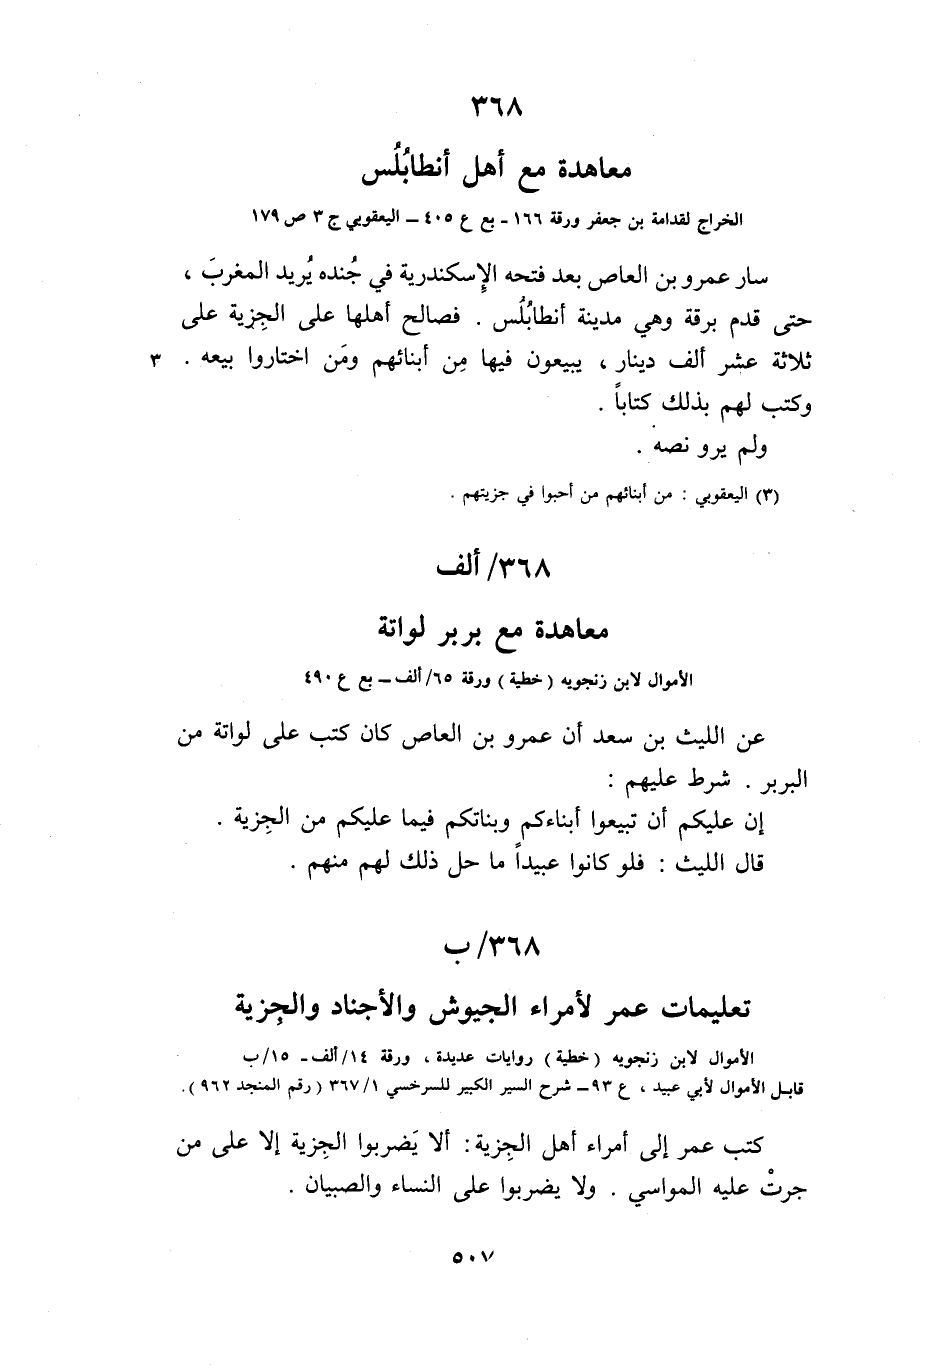 ٣٦٨
معاهدة مع أهل أنطابُلُس
الخراج لقدامة بن جعفر ورقة ١٦٦ - بع ع ٤٠٥ - اليعقوبي ج ٣ ص ١٧٩
سار عمرو بن العاص بعد فتحه الإسكندرية في جُنده يُريد المغربَ ،
حتى قدم برقة وهي مدينة أنطابُلُس . فصالح أهلها على الجِزية على
ثلاثة عشر ألف دينار ، يبيعون فيها مِن أبنائهم ومَن اختاروا بيعه . ٣
وكتب لهم بذلك كتاباً .
ولم يرو نصه .
(٣) اليعقوبي : من أبنائهم من أحبوا في جزيتهم .
٣٦٨/ ألف
معاهدة مع بربر لواتة
الأموال لابن زنجويه ( خطية ) ورقة ٦٥/ ألف - بع ع ٤٩٠
عن الليث بن سعد أن عمرو بن العاص كان كتب على لواتة من
البربر . شرط عليهم :
إن عليكم أن تبيعوا أبناءكم وبناتكم فيما عليكم من الجِزية .
قال الليث : فلو كانوا عبيداً ما حل ذلك لهم منهم .
٣٦٨/ ب
تعليمات عمر لأمراء الجيوش والأجناد والجِزية
الأموال لابن زنجويه ( خطية ) روايات عديدة ، ورقة ١٤/ ألف - ١٥/ ب
قابل الأموال لأبي عبيد ، ع ٩٣ - شرح السير الكبير للسرخسي ١/ ٣٦٧ ( رقم المنجد ٩٦٢ ) .
كتب عمر إلى أمراء أهل الجِزية : ألا يَضربوا الجِزية إلا على من
جرتْ عليه المواسي . ولا يضربوا على النساء والصبيان .
٥٠٧